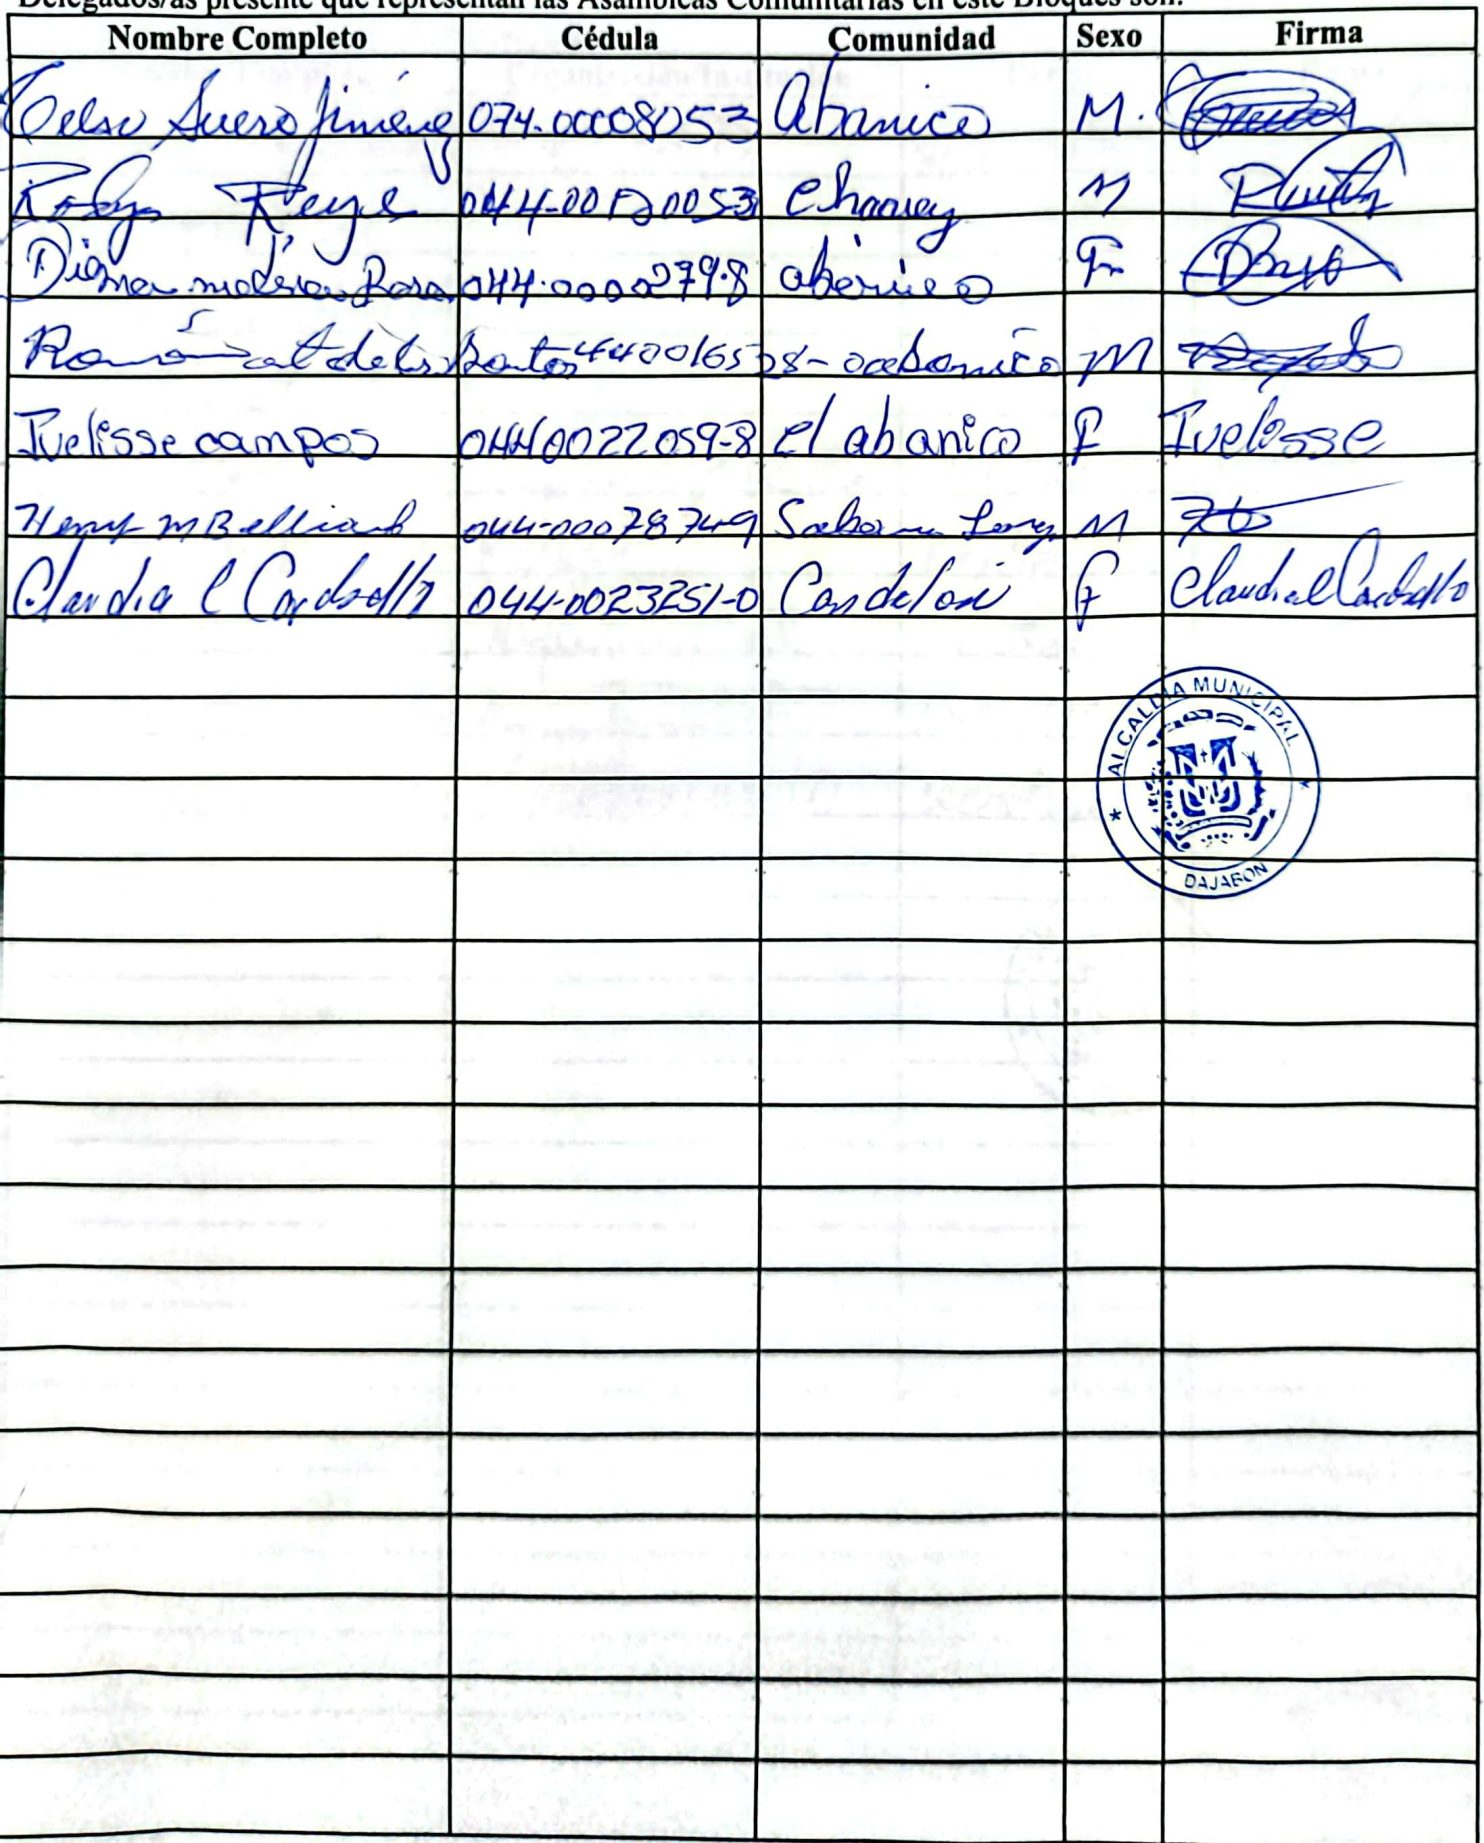 Delegados/as presente que representan las Asambleas Comunitarias en este Bloques son:
Nombre Completo Cédula Comunidad Sexo Firma
Celso Suero Jimenez 074-00008053 Abanico M.
Reyes 044-00120053 Chacuey M
Diana 044-0000279-8 abanico F
Ramón delos Santos 440016528- abanico M
Ivelisse campos 04400220598 el abanico F Ivelisse
Henry M Belliard 044-00078749 Sabana Larga M
Claudia C Carballo 044-0023251-0 Candelon F Claudia C Carballo
ALCALDIA MUNICIPAL
DAJABON